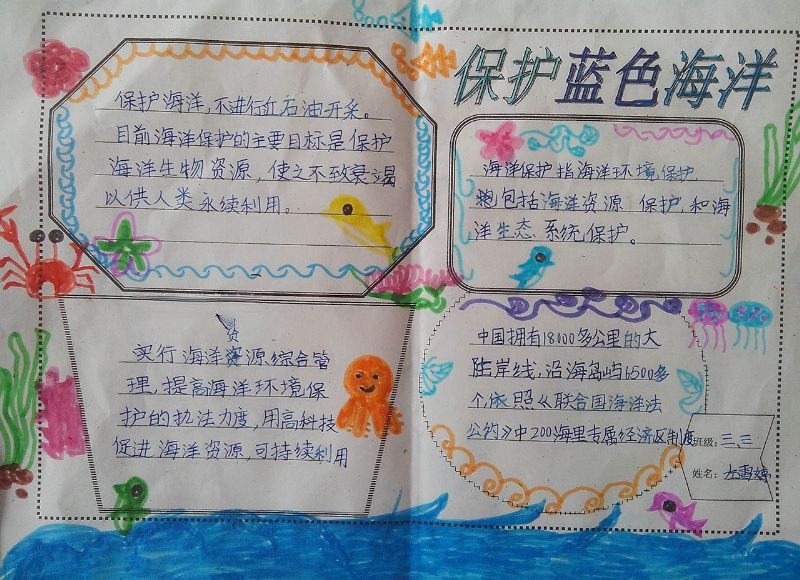 保护蓝色海洋
保护海洋，不进行近石油开采。
目前海洋保护的主要目标是保护
海洋生物资源，使之不致衰竭
以供人类永续利用。
海洋保护指海洋环境保护，
包括海洋资源 保护，和海
洋生态系统保护。
资
实行海洋源综合管
理，提高海洋环境保
护的执法力度，用高科技
促进海洋资源，可持续利用
中国拥有18000多公里的大
陆岸线，沿海岛屿6500多
个，依照《联合国海洋法
公约》中200海里专属经济区制度
班级：三、三
姓名：雪婷